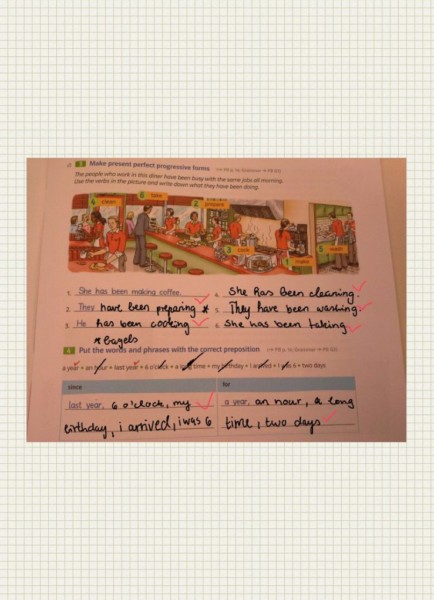 3 Make present perfect progressive forms
The people who work in this diner have been busy with the same jobs all morning.
Use the verbs in the picture and write down what they have been doing.
4 clean
6 take
2 prepare
3 cook
1 make
5 wash
1. She has been making coffee.
2. They have been preparing *
3. He has been cooking
* bagels
4. She has been cleaning.
5. They have been washing.
6. She has been taking
4 Put the words and phrases with the correct preposition
a year • an hour • last year • 6 o'clock • a long time • my birthday • I arrived • I was 6 • two days
since
for
last year, 6 o'clock, my
birthday, i arrived, i was 6
a year, an hour, a long
time, two days